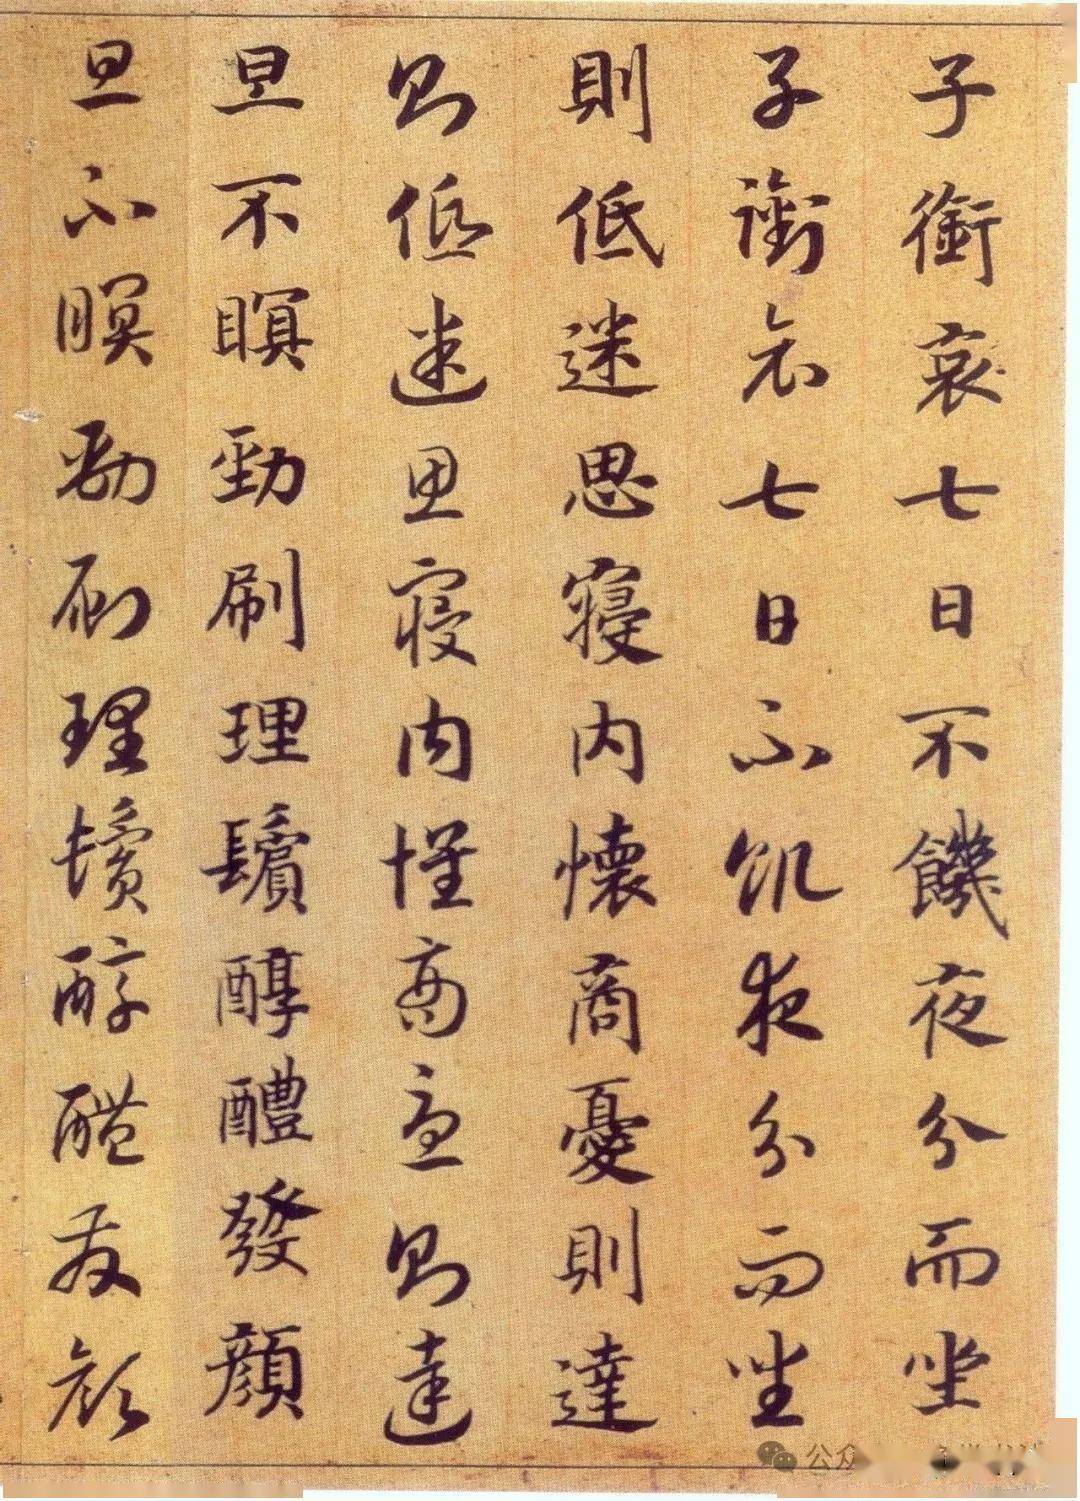 子銜哀七日不饑夜分而坐
子銜哀七日不饥夜分而坐
則低迷思寢內懷商憂則達
則低迷思寢內懷商憂則達
旦不瞑勁刷理鬢醇醴發顏
旦不瞑勁刷理鬢醇醴發顏
公众